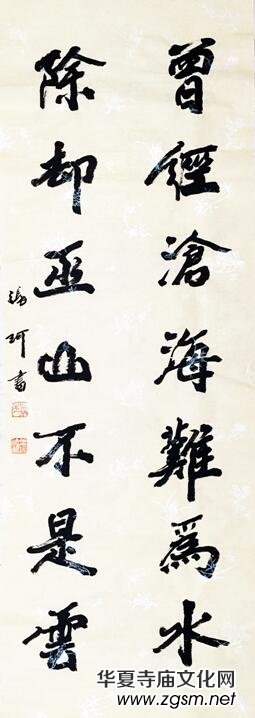 曾經滄海難為水
除却巫山不是雲
珂書
华夏寺庙文化网
www.zgsm.net